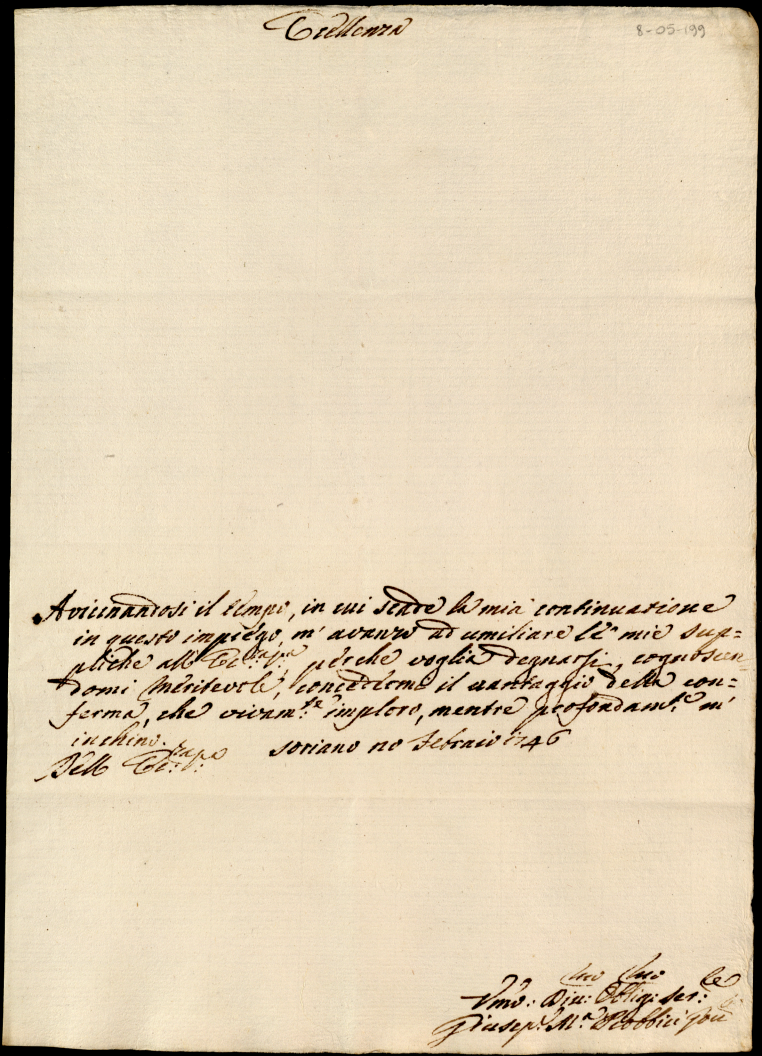 Eccellenza
8-05-199
Avicinandosi il tempo, in cui scade la mia continuatione
in questo impiego, m' avanzo ad umiliare le mie sup=
pliche all' Ecc:za V:a perche voglia degnarsi, cognoscen=
domi meritevole, concedermi il vantaggio della con=
ferma, che vivam:te imploro, mentre profondam:te m'
inchino.
Dell' Ecc:za V:a Soriano Febraio 1746
Umo: Div: Oblig: ser:
Giusep: M:a